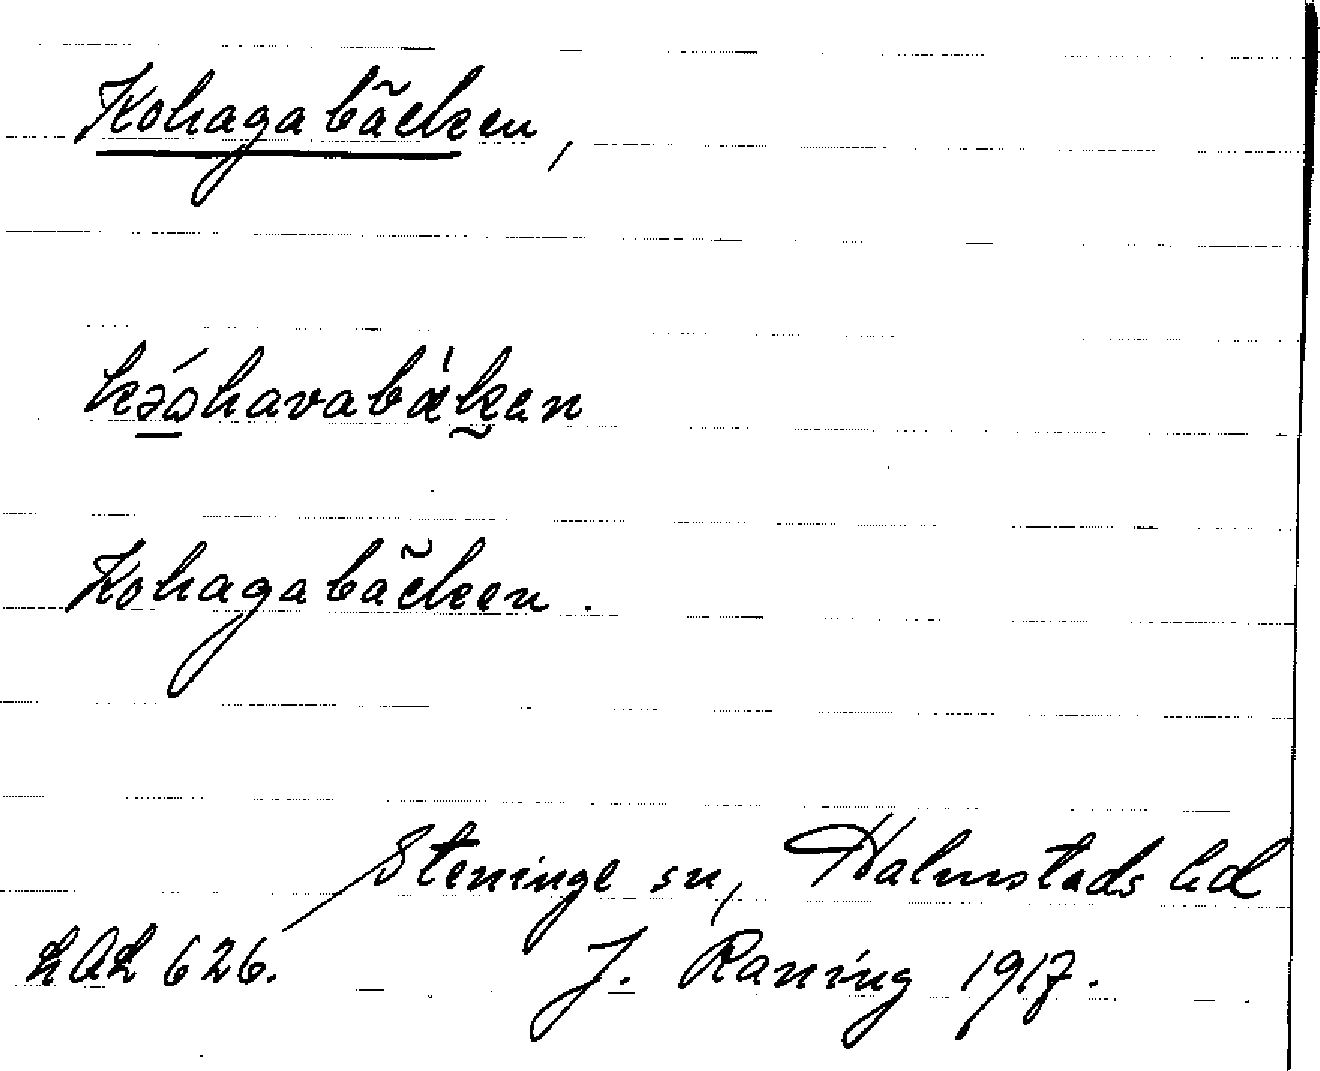 Kohagabäcken,
kəóhavabäken
Kohagabäcken.
Steninge sn, Halmstads hd
LAL 626. J. Raning 1917.